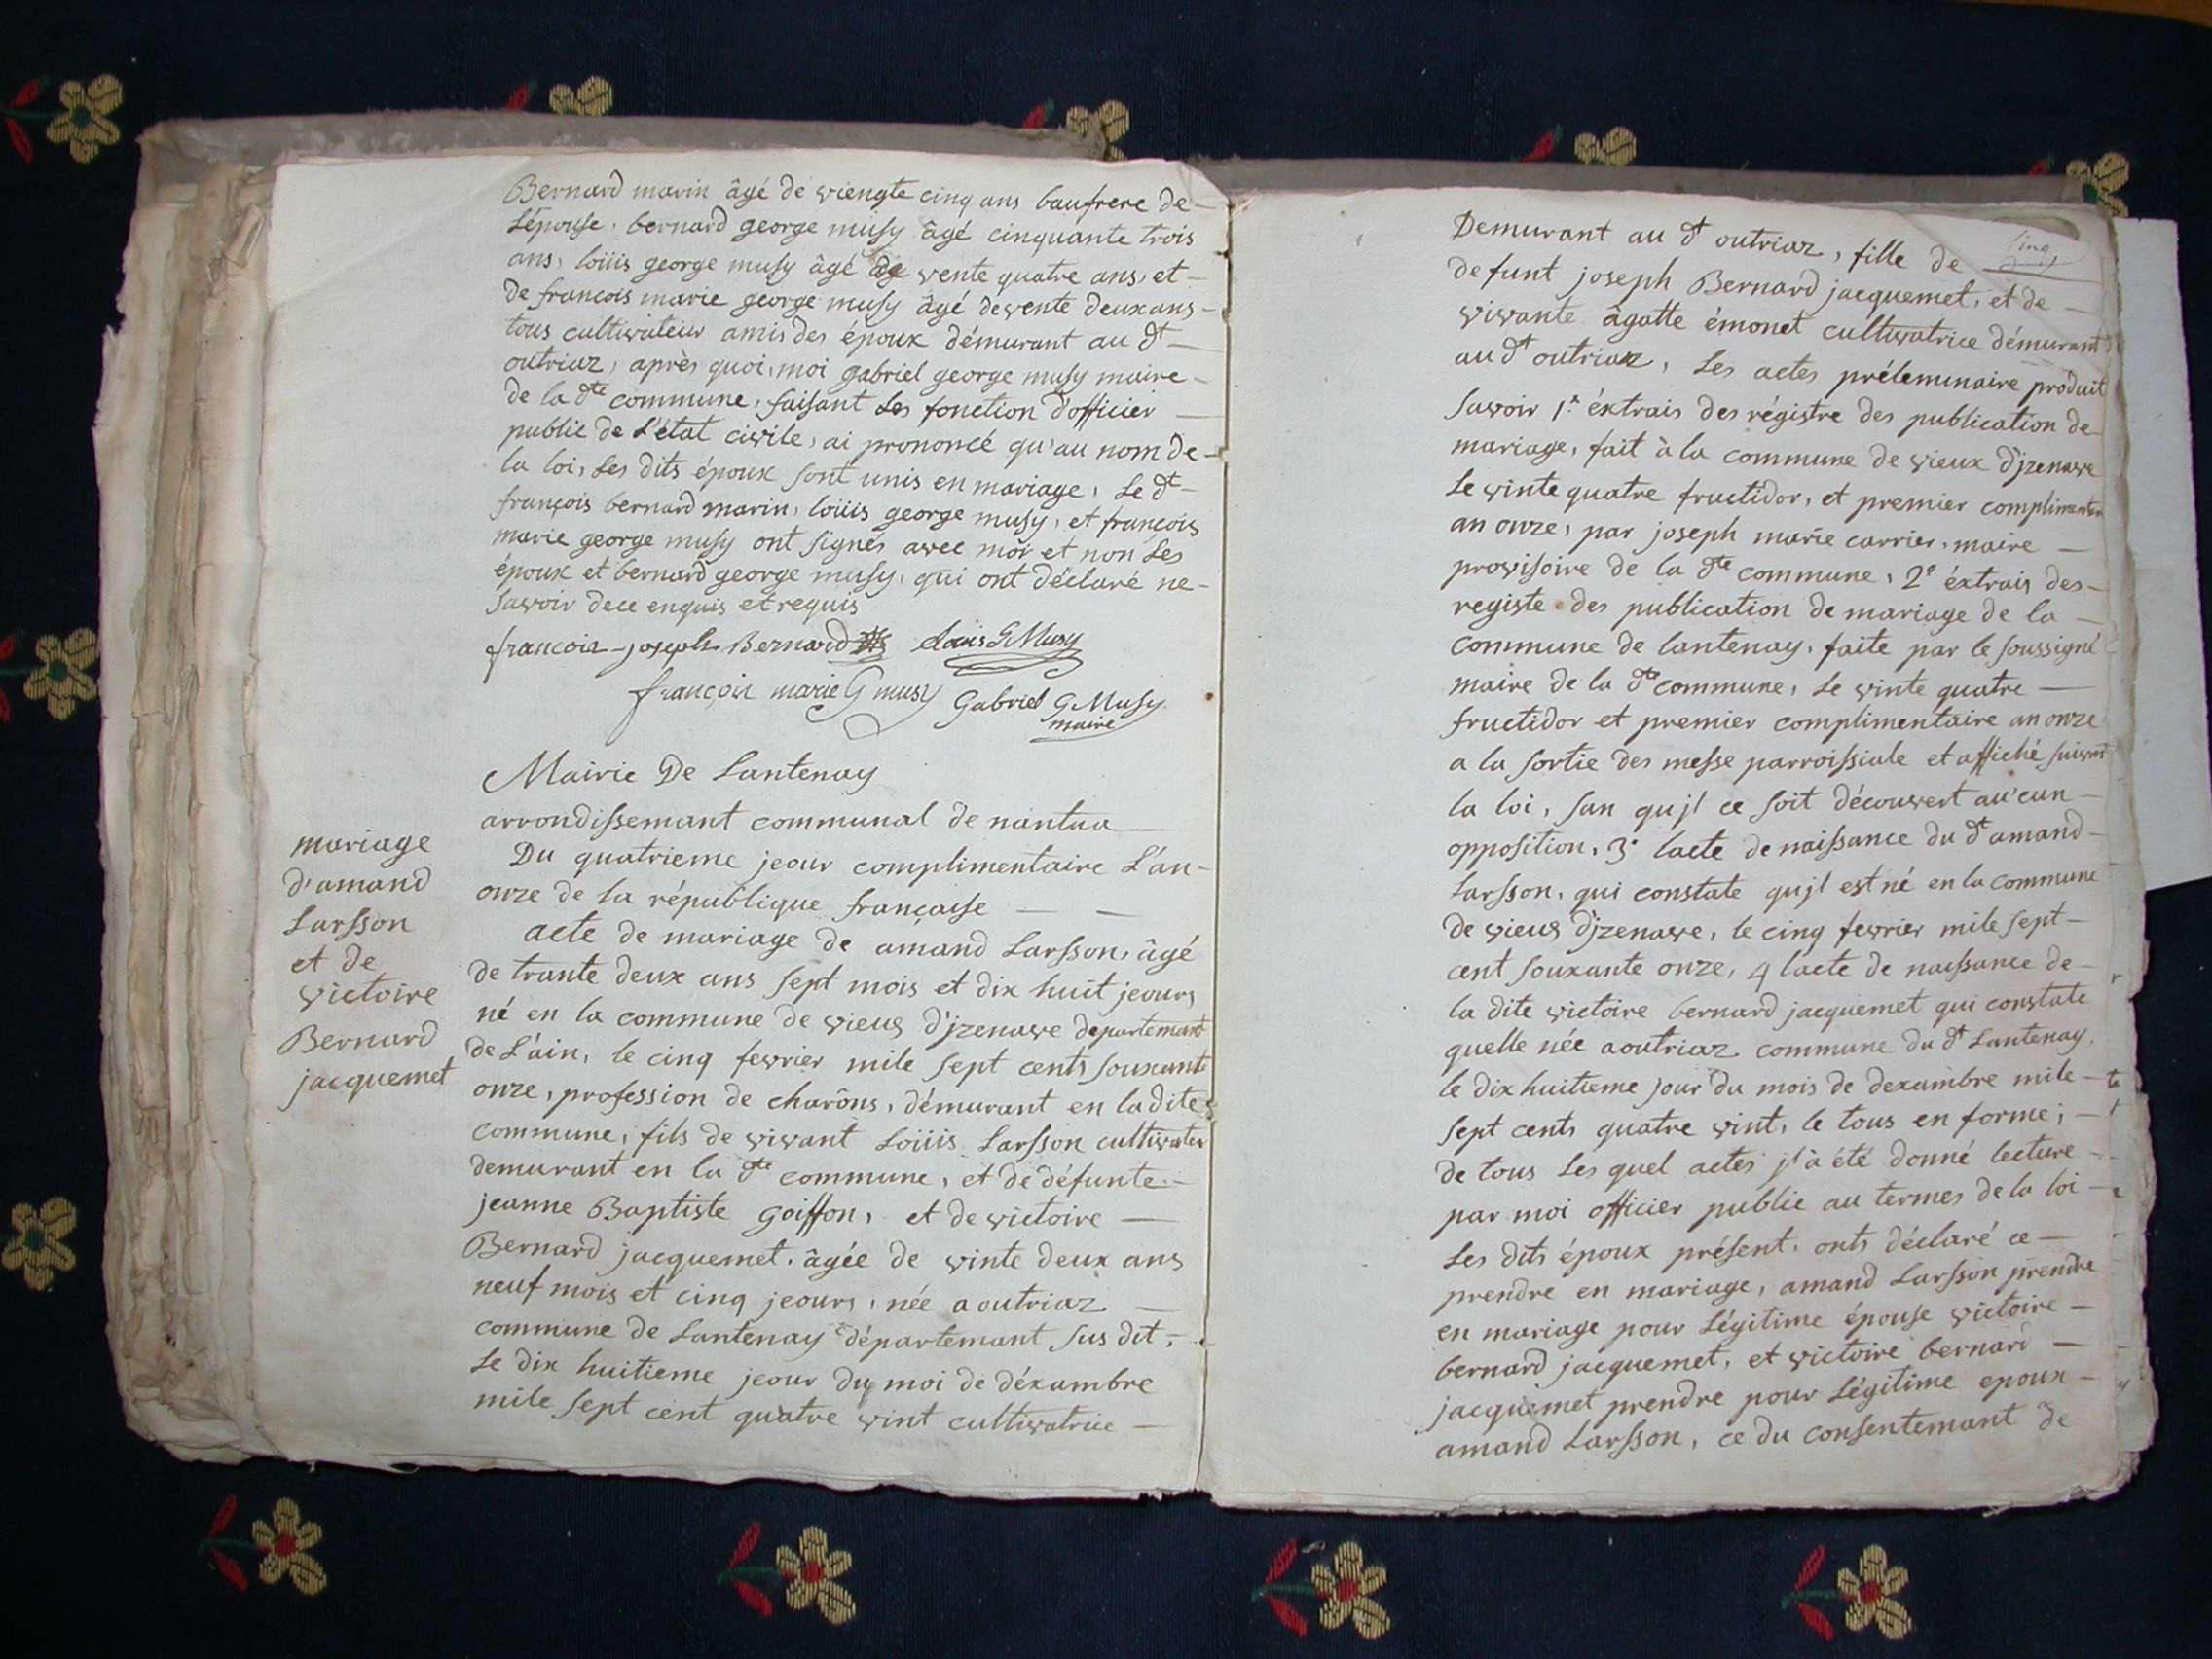 Bernard marin âgé de viengte cinq ans baufrere de
L'épouse, bernard george musy âgé cinquante trois
ans, loüis george musy âgé de vente quatre ans, et
de francois marie george musy âgé de vente deux ans
tous cultivateur amis des époux démurant au dt
outriaz, après quoi, moi gabriel george musy maire
de la dte commune, faisant les fonction d'officier
public de L'état civile, ai prononcé qu'au nom de
la loi, Les dits époux sont unis en mariage, Le dt
françois bernard marin, loüis george musy, et françois
marie george musy ont signés avec moi et non Les
époux et bernard george musy, qui ont déclaré ne
savoir dece enquis et requis
francois joseph Bernard Loüis G Musy
françoir marie G musy Gabriel G Musy
maire
Mairie De Lantenay
arrondissemant communal de nantua
mariage
d'amand
Larsson
et de
victoire
Bernard
jacquemet
Du quatrieme jeour complimentaire L'an
onze de la république française
acte de mariage de amand Larsson, âgé
de trante deux ans sept mois et dix huit jeours
né en la commune de vieus d'jzenave departemant
de L'ain, le cinq fevrier mile sept cents souxante
onze, profession de charôns, démurant en la dite
commune, fils de vivant Loüis Larsson cultivater
demurant en la dte commune, et de défunte
jeanne Baptiste goiffon, et de victoire
Bernard jacquemet. âgée de vinte deux ans
neuf mois et cinq jeours, née a outriaz
commune de Lantenay département sus dit,
Le dix huitieme jeour du moi de déxambre
mile sept cent quatre vint cultivatrice
cinq
Demurant au dt outriaz, fille de
defunt joseph Bernard jacquemet, et de
vivante âgatte émonet cultivatrice démurant
au dt outriaz, Les actes préleminaire produit
savoir 1.° éxtrais des régistre des publication de
mariage, fait à la commune de vieux d'jzenave
Le vinte quatre fructidor, et premier complimenter
an onze, par joseph marie carrier, maire
provisoire de la dte commune, 2° éxtrais des
registe des publication de mariage de la
commune de lantenay, faite par le soussigné
maire de la dte commune, Le vinte quatre
fructidor et premier complimentaire an onze
a la sortie des messe parroissiale et affiché suivant
la loi, san qu'jl ce soit découvert au'cun
opposition, 3° lacte de naissance du dt amand
Larsson, qui constate qu'jl est né en la commune
de vieus d'jzenave, le cinq fevrier mile sept
cent souxante onze, 4 lacte de naissance de
la dite victoire bernard jacquemet qui constate
quelle née a outriaz commune du dt Lantenay,
le dix huitieme jour du mois de dexambre mile
sept cents quatre vint, le tous en forme;
de tous Les quel actes jl à été donné lecture
par moi officier public au termes de la loi
Les dits époux présent, onts déclaré ce
prendre en mariage, amand Larsson prendre
en mariage pour Légitime épouse victoire
bernard jacquemet, et victoire bernard
jacquemet prendre pour Légitime epoux
amand Larsson, ce du consentemant de